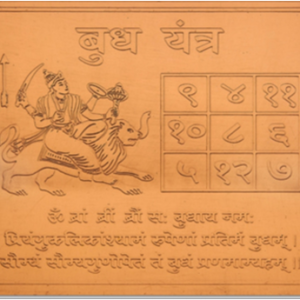 बुध यंत्र
९ ४ ११
१० ८ ६
५ १२ ७
ॐ ब्रां ब्रीं ब्रौं सः बुधाय नमः
प्रियंगुकलिकाश्यामं रुपेणा प्रतिमं बुधम् ।
सौम्यं सौम्यगुणोपेतं तं बुधं प्रणमाम्यहम् ।